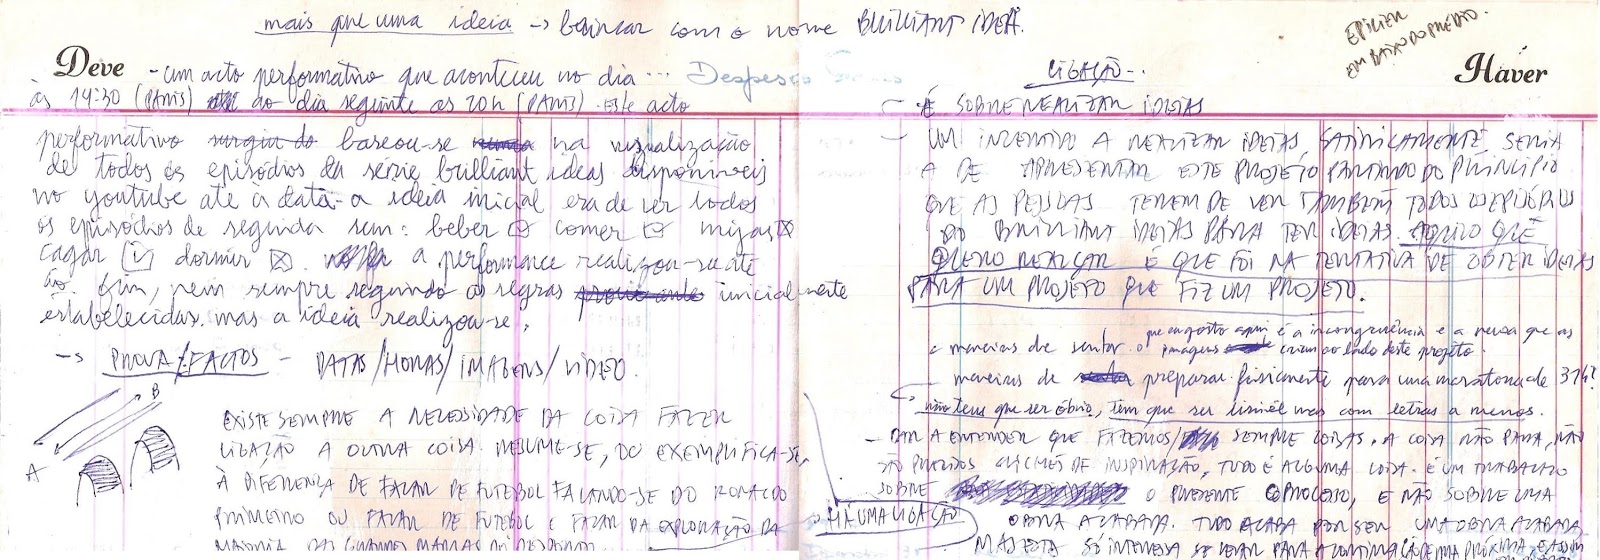 mais que uma ideia -> brincar com o nome BRILLIANT IDEA.
EPILER
EM BAIXO DO PRÉDIO.
Deve
- um acto performativo que aconteceu no dia ... Despesas
às 14:30 (PARIS) ao dia seguinte as 20h (PARIS). Este acto
performativo surgiu do baseou-se na visualização
de todos os episódios da série brilliant ideas disponíveis
no youtube até à data - a ideia inicial era de ver todos
os episódios de seguida sem: beber comer mijar
cagar dormir a performance realizou-se até
ao fim, nem sempre seguindo as regras inicialmente
estabelecidas. mas a ideia realizou-se.
-> PROVA/FACTOS - DATAS/HORAS/IMAGENS/VIDEO.
B
A
EXISTE SEMPRE A NECESSIDADE DA COISA FAZER
LIGAÇÃO A OUTRA COISA. RESUME-SE, OU EXEMPLIFICA-SE,
À DIFERENÇA DE FALAR DE FUTEBOL FALANDO-SE DO RONALDO
PRIMEIRO OU FALAR DE FUTEBOL E FALAR DA EXPLORAÇÃO DA
MAIORIA DAS GRANDES MARCAS DO DESPORTO
Haver
LIGAÇÃO -.
- É SOBRE REALIZAR IDEIAS
- UM INCENTIVO A REALIZAR IDEIAS, SATIRICAMENTE, SERIA
A DE APRESENTAR ESTE PROJETO PARTINDO DO PRINCIPIO
QUE AS PESSOAS TEREM DE VER TAMBÉM TODOS OS EPISÓDIOS
DO BRILLIANT IDEIAS PARA TER IDEIAS. AQUILO QUE
QUERO REALÇAR É QUE FOI NA TENTATIVA DE OBTER IDEIAS
PARA UM PROJETO QUE FIZ UM PROJETO.
- maneiras de sentar. o que eu gosto aqui é a incongruência e a nevoa que as
imagens criam ao lado deste projeto.
- maneiras de preparar fisicamente para uma maratona de 31h?
não tens que ser óbvio, tem que ser com letras a menos.
- DAR A ENTENDER QUE FAZEMOS/ SEMPRE COISAS. A COISA NÃO PARA, NÃO
SÃO PRECISOS CLICHÉS DE INSPIRAÇÃO, TUDO É ALGUMA COISA. É UM TRABALHO
SOBRE O PRESENTE O PROCESSO, E NÃO SOBRE UMA
HÁ UMA LIGAÇÃO
OBRA ACABADA. TUDO ACABA POR SER UMA OBRA ACABADA
MAS ESTA SÓ INTERESSA SE LEVAR PARA A CONTINUAÇÃO DE UMA PRÓXIMA, E ASSIM